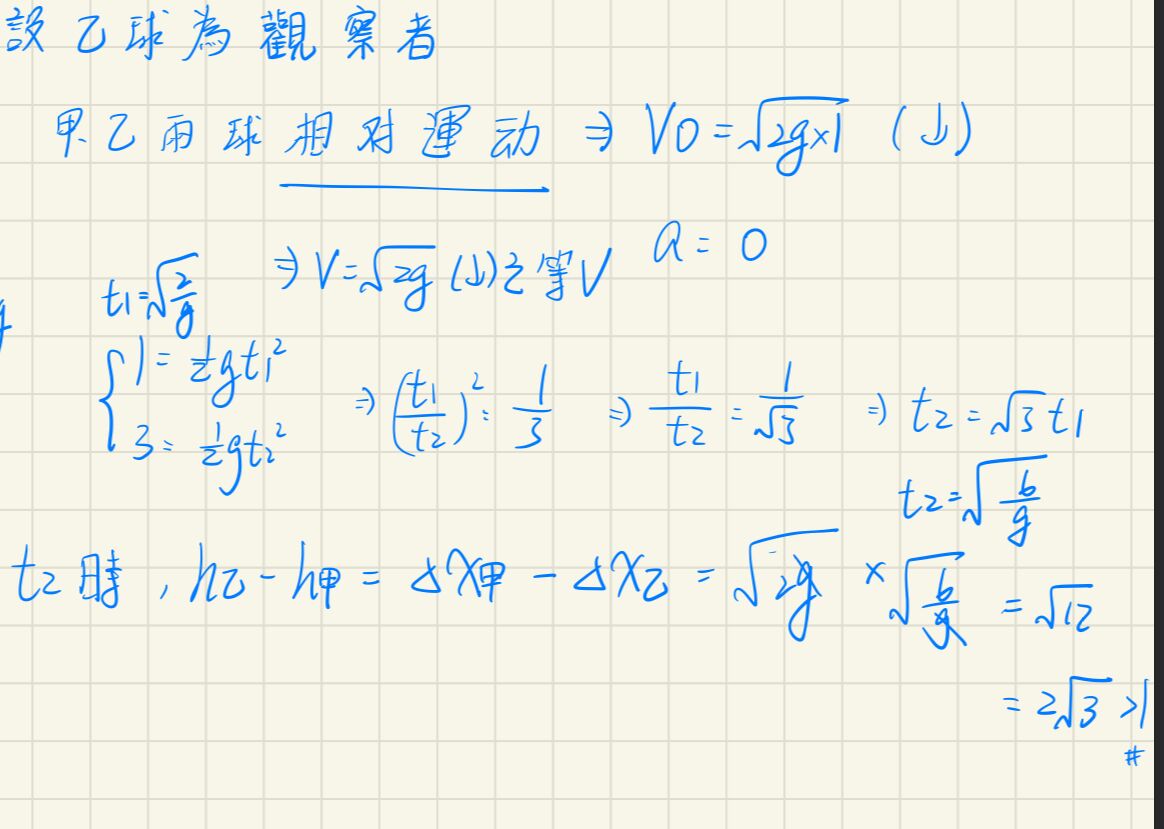 設乙球為觀察者
甲乙兩球相対運动 ⇒ V0=√2g×1 (↓)
⇒ V=√2g (↓)之等V a=0
t1=√(2/g)
{1=½gt1² ⇒ (t1/t2)²=1/3 ⇒ t1/t2=1/√3 ⇒ t2=√3 t1
3=½gt2²
t2=√(6/g)
t2時,h乙-h甲=ΔX甲-ΔX乙=√2g×√(6/g)=√12
=2√3>1
#